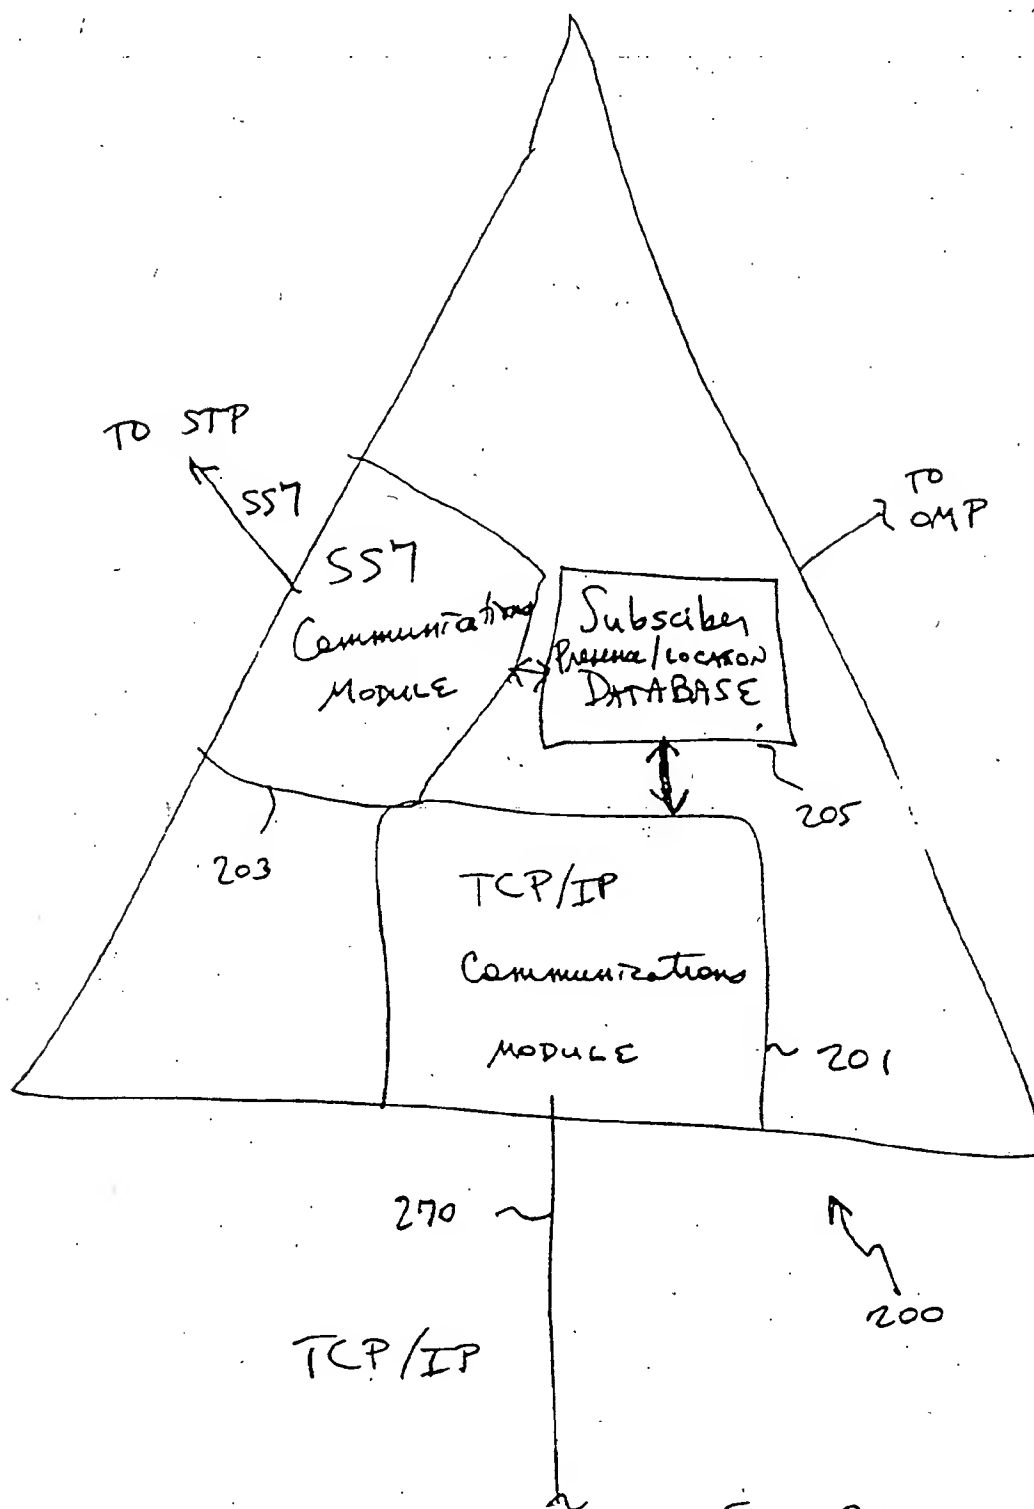 TO STP
SS7
TO
OMP
SS7
Communications
MODULE
Subsciber
Presence/LOCATION
DATABASE
205
203
TCP/IP
Communications
MODULE
201
270
200
TCP/IP